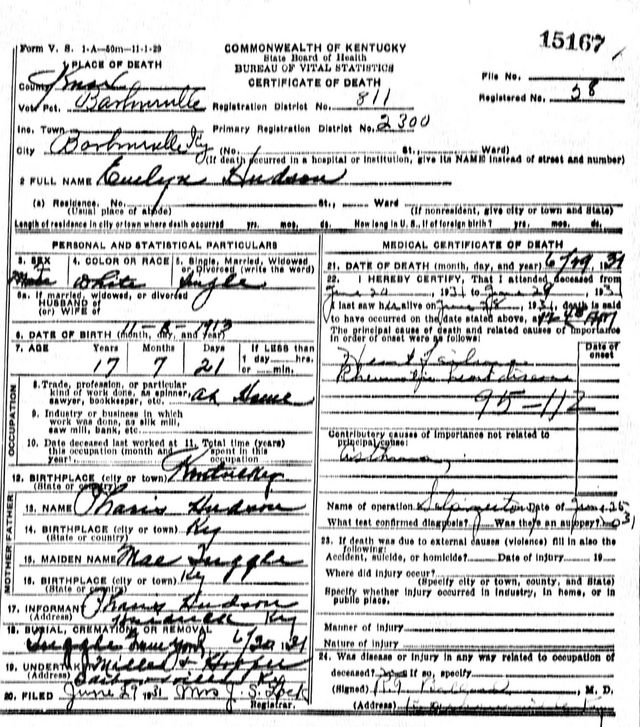 15167
Form V. S. 1-A—50m—11-1-29
COMMONWEALTH OF KENTUCKY
State Board of Health
BUREAU OF VITAL STATISTICS
CERTIFICATE OF DEATH
PLACE OF DEATH
County Knox
File No.
Registered No. 58
Vote Pct. Barbourville
Registration District No. 811
Inc. Town
Primary Registration District No. 2300
City Barbourville Ky (No. St., Ward)
(If death occurred in a hospital or institution, give its NAME instead of street and number)
2 FULL NAME Evelyn Hudson
(a) Residence. No. St., Ward
(Usual place of abode) (If nonresident, give city or town and State)
Length of residence in city or town where death occurred yrs. mos. ds. How long in U. S., if of foreign birth? yrs. mos. ds.
PERSONAL AND STATISTICAL PARTICULARS
3. SEX 4. COLOR OR RACE 5. Single, Married, Widowed
or Divorced (write the word)
White Single
5a. If married, widowed, or divorced
HUSBAND of
(or) WIFE of
6. DATE OF BIRTH (month, day, and year) 11-8-1913
7. AGE Years Months Days If LESS than
1 day hrs.
or min.
17 7 21
OCCUPATION
8. Trade, profession, or particular
kind of work done, as spinner,
sawyer, bookkeeper, etc. At Home
9. Industry or business in which
work was done, as silk mill,
saw mill, bank, etc.
10. Date deceased last worked at 11. Total time (years)
this occupation (month and spent in this
year) occupation
12. BIRTHPLACE (city or town) Kentucky
(State or country)
FATHER
13. NAME Hudson
14. BIRTHPLACE (city or town) Ky
(State or country)
MOTHER
15. MAIDEN NAME Mae Tuggle
16. BIRTHPLACE (city or town) Ky
(State or country)
17. INFORMANT Hudson
(Address) Ky
18. BURIAL, CREMATION, OR REMOVAL
Tuggle 6/30 31
19. UNDERTAKER Miller & Hopper
(Address) Barbourville Ky
20. FILED June 29 1931 Mrs J. S. Lock
Registrar.
MEDICAL CERTIFICATE OF DEATH
21. DATE OF DEATH (month, day, and year) 6/29 1931
22. I HEREBY CERTIFY, That I attended deceased from
June 20 1931 to June 29 1931
I last saw her alive on June 28, 1931, death is said
to have occurred on the date stated above, at
The principal cause of death and related causes of importance
in order of onset were as follows:
Date of
onset
Heart Failure
Rheumatic heart disease
95-112
Contributory causes of importance not related to
principal cause:
Asthma
Name of operation Date of June 25
What test confirmed diagnosis? Was there an autopsy?
23. If death was due to external causes (violence) fill in also the
following:
Accident, suicide, or homicide? Date of injury 19
Where did injury occur?
(Specify city or town, county, and State)
Specify whether injury occurred in industry, in home, or in
public place.
Manner of injury
Nature of injury
24. Was disease or injury in any way related to occupation of
deceased? If so, specify
(Signed) M. D.
(Address)